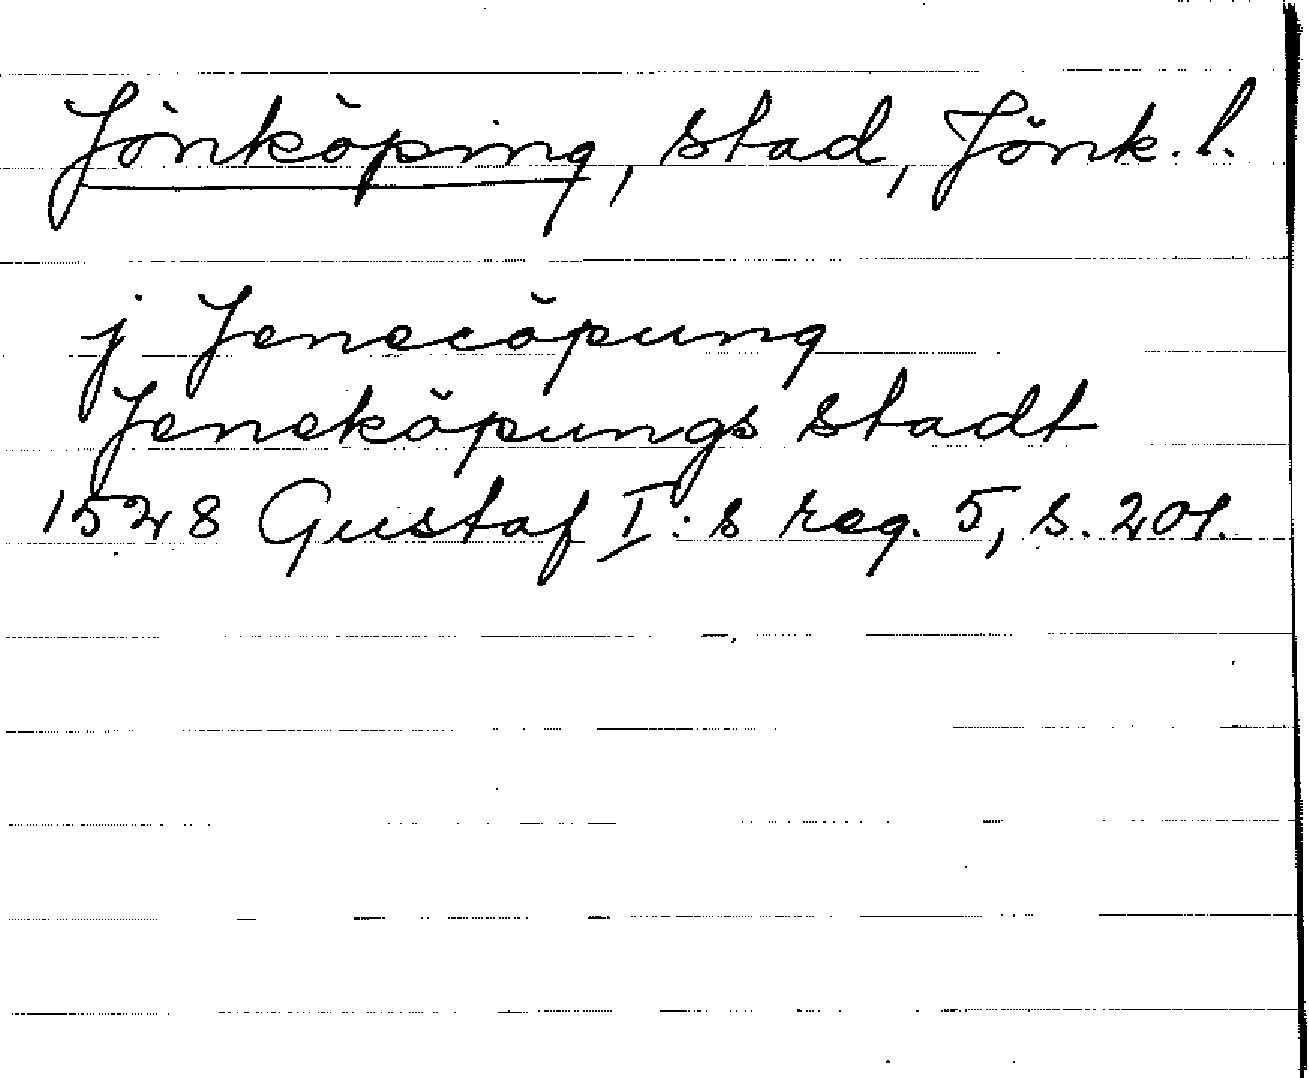 Jönköping, stad, Jönk. l.
j Jenecöpung
Jeneköpungs stadt
1528 Gustaf I:s reg. 5, s. 201.